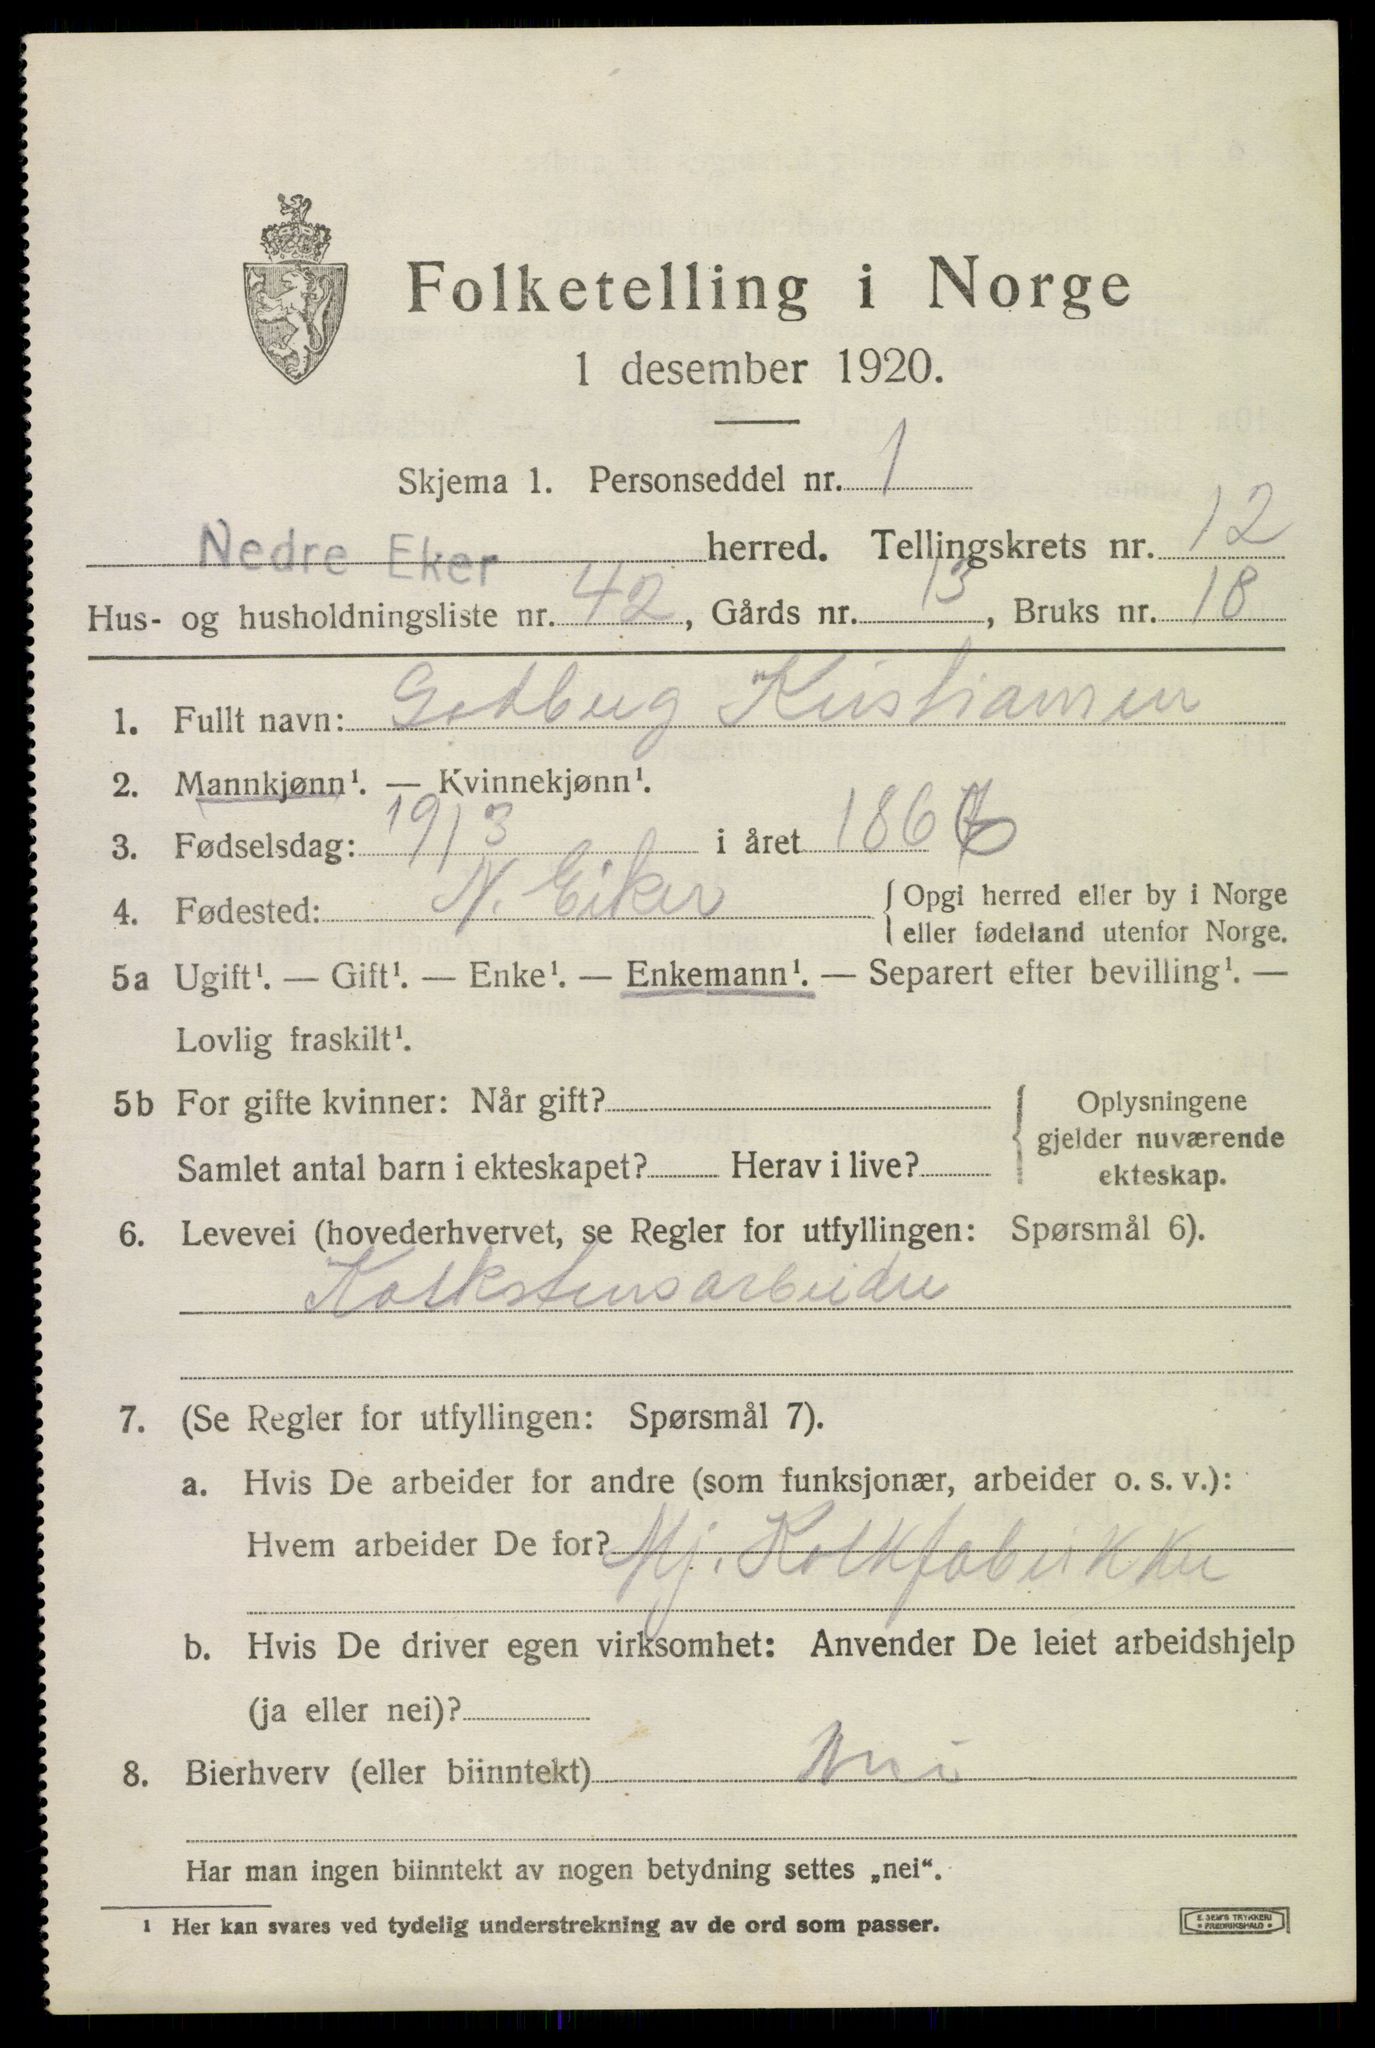 Folketelling i Norge
1 desember 1920.
Skjema 1. Personseddel nr. 1
Nedre Eker herred. Tellingskrets nr. 12
Hus- og husholdningsliste nr. 42, Gårds nr. 13, Bruks nr. 18
1. Fullt navn: Kristiansen
2. Mannkjønn¹. — Kvinnekjønn¹.
3. Fødselsdag: 19/3 i året 186
4. Fødested: N. Eiker { Opgi herred eller by i Norge
eller fødeland utenfor Norge.
5a Ugift¹. — Gift¹. — Enke¹. — Enkemann¹. — Separert efter bevilling¹. —
Lovlig fraskilt¹.
5b For gifte kvinner: Når gift?
Samlet antal barn i ekteskapet? Herav i live?
{ Oplysningene
gjelder nuværende
ekteskap.
6. Levevei (hovederhvervet, se Regler for utfyllingen: Spørsmål 6).
Kalkstensarbeider
7. (Se Regler for utfyllingen: Spørsmål 7).
a. Hvis De arbeider for andre (som funksjonær, arbeider o. s. v.):
Hvem arbeider De for? Mj. Kalkfabrikker
b. Hvis De driver egen virksomhet: Anvender De leiet arbeidshjelp
(ja eller nei)?
8. Bierhverv (eller biinntekt) Nei
Har man ingen biinntekt av nogen betydning settes „nei“.
¹ Her kan svares ved tydelig understrekning av de ord som passer.
E. SEM'S TRYKKERI
• FREDRIKSHALD •